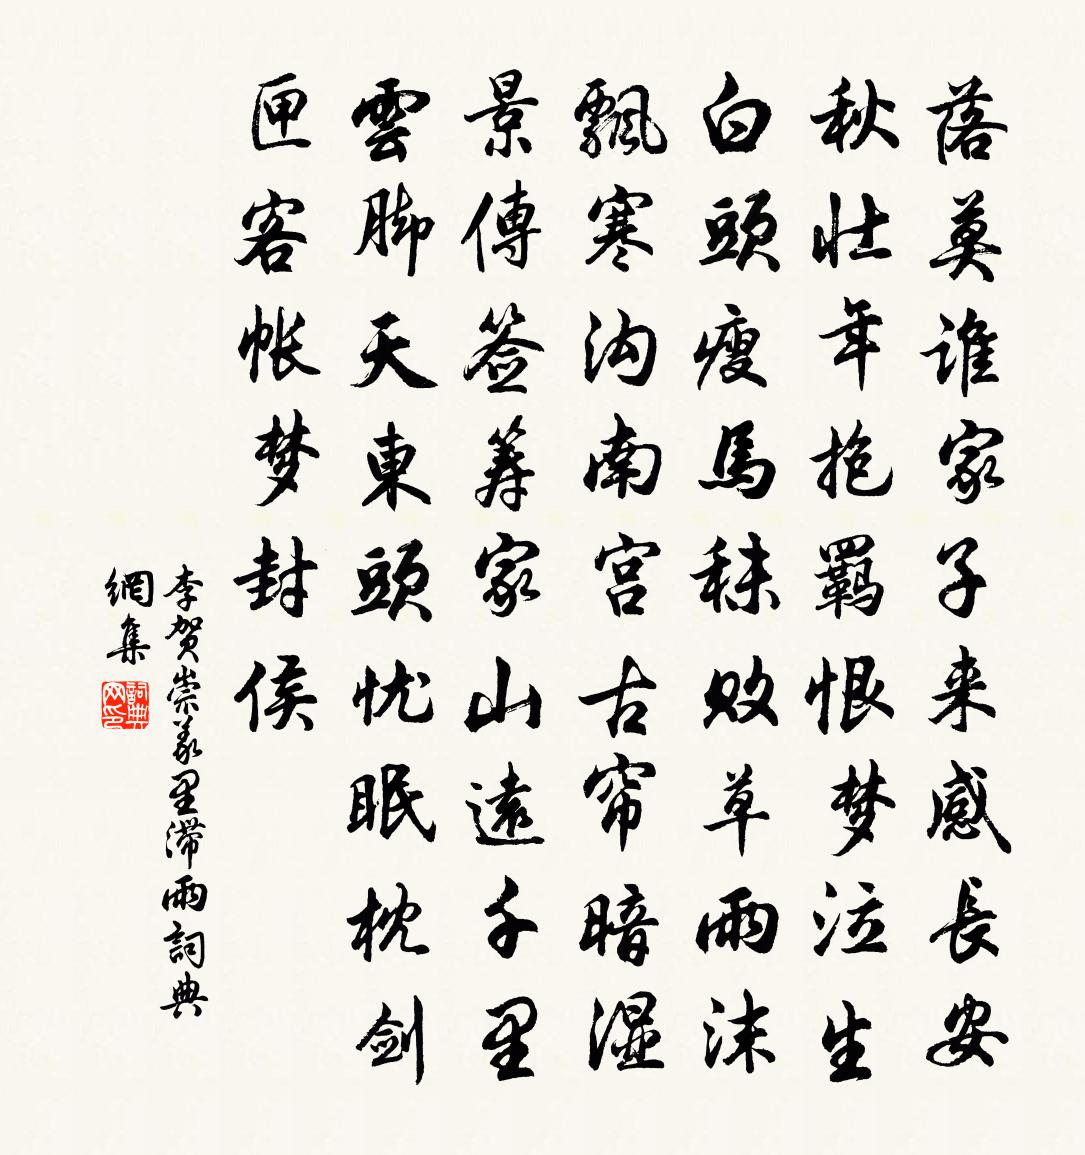 落莫谁家子来感長安
秋壮年抱羁恨梦泣生
白頭瘦馬秣败草雨沫
飄寒沟南宫古帘暗湿
景傳签筹家山遠千里
雲脚天東頭忧眠枕剑
匣客帐梦封侯
李贺崇義里滞雨詞典
網集
詞典网印